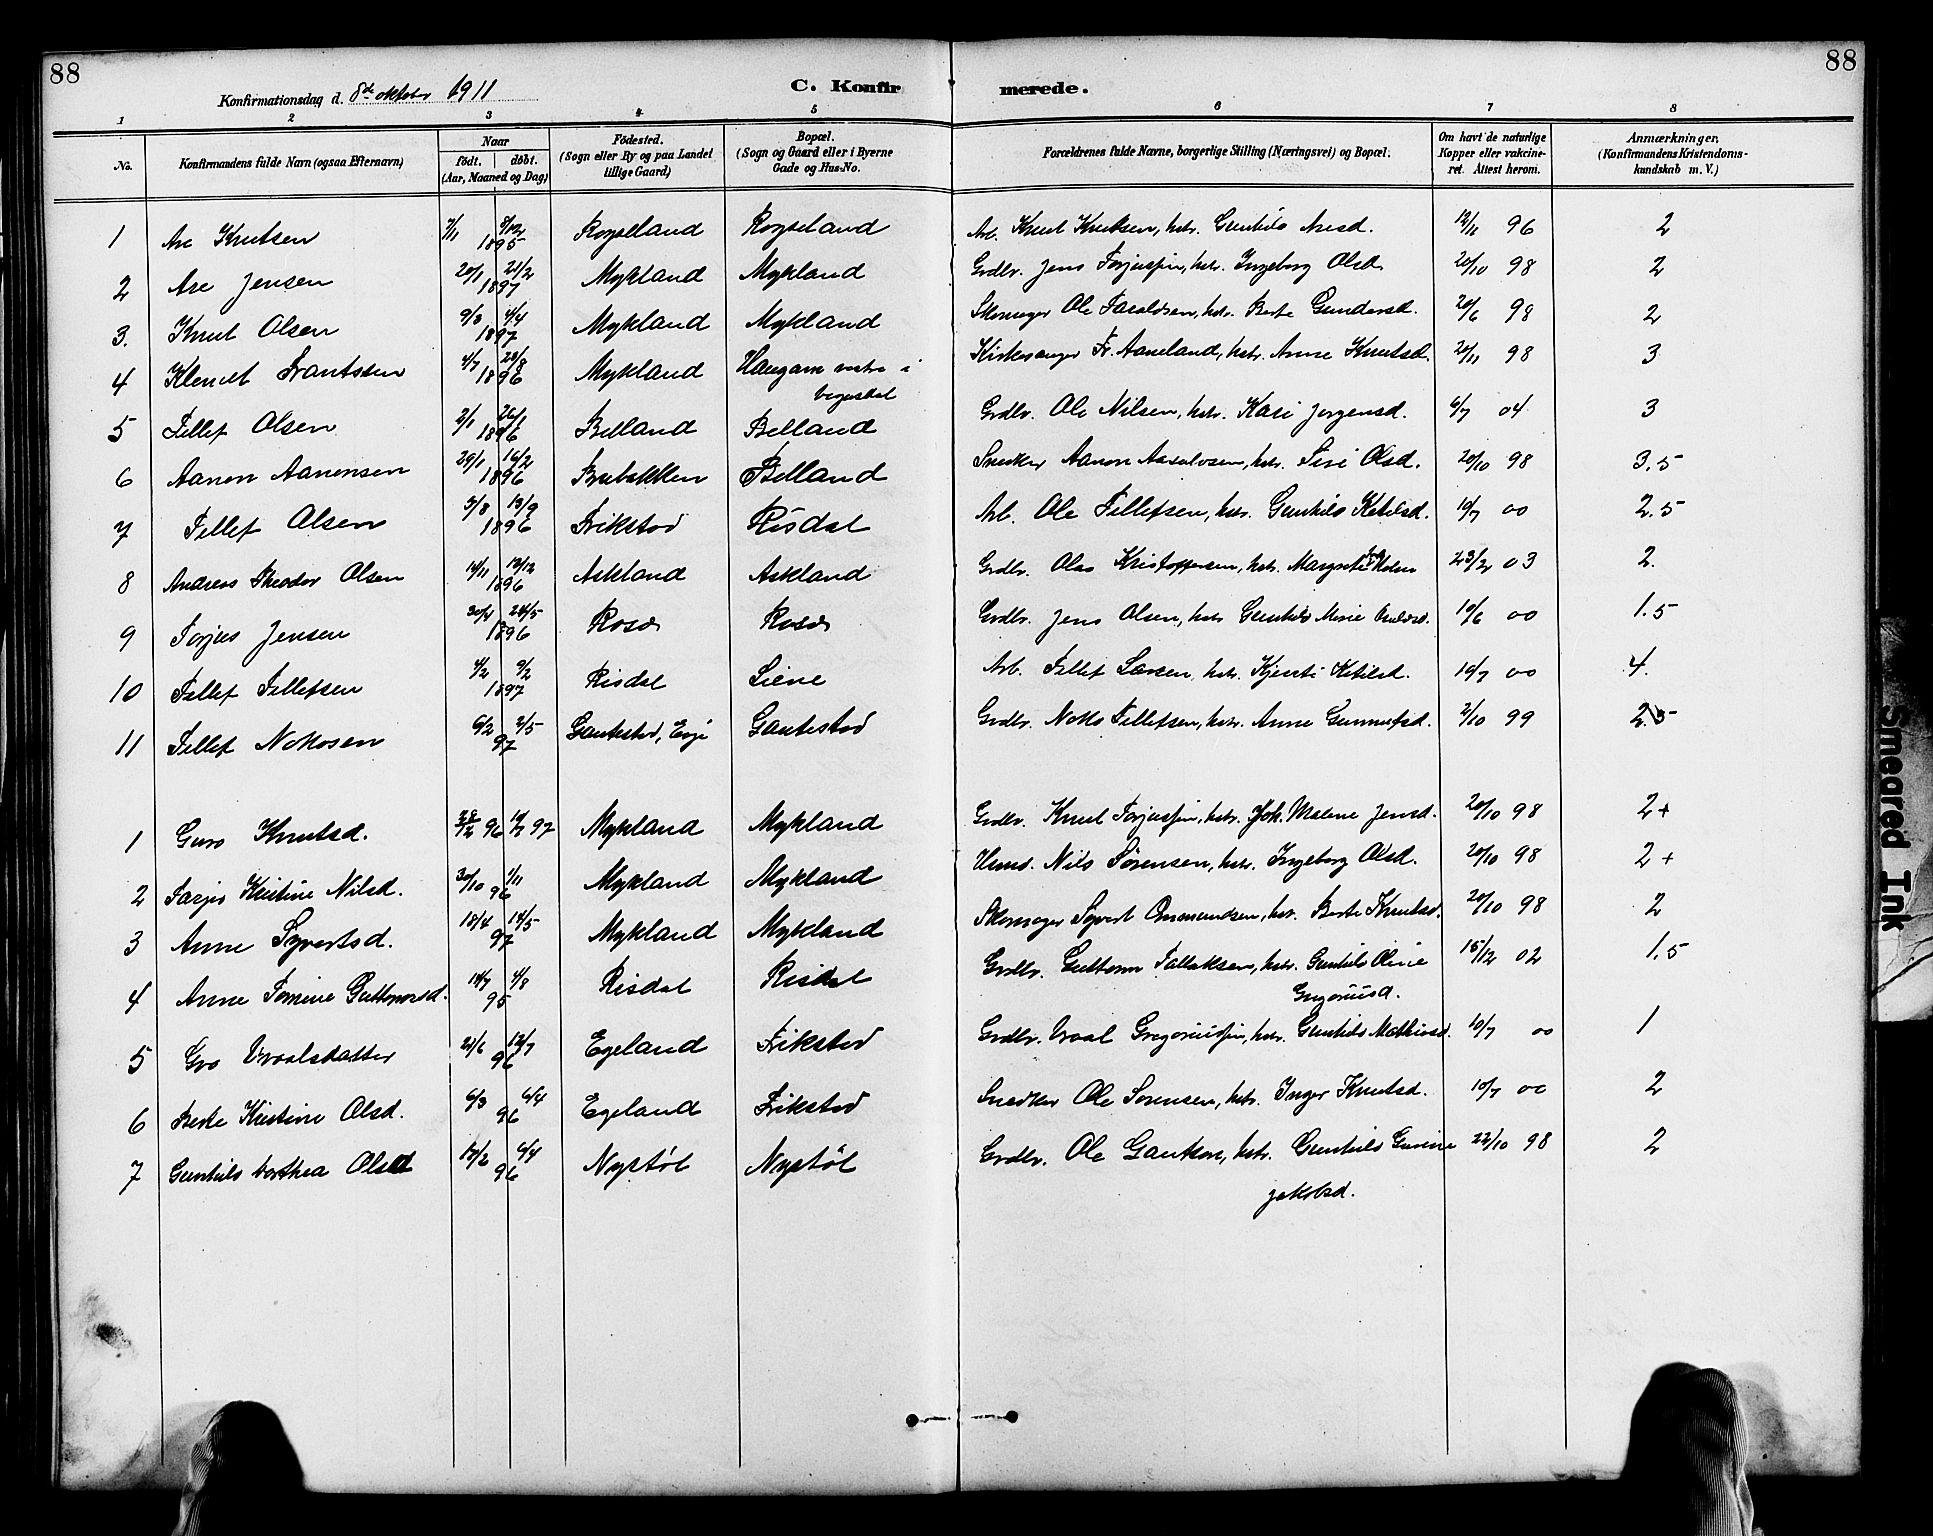 88
88
Konfirmationsdag d. 8de oktober 1911
C. Konfirmerede.
1 2 3 4 5 6 7 8
No. Konfirmandens fulde Navn (ogsaa Efternavn) Naar født. døbt. (Aar, Maaned og Dag) Fødested. (Sogn eller By og paa Landet tillige Gaard) Bopæl. (Sogn og Gaard eller i Byerne Gade og Hus-No. Forældrenes fulde Navne, borgerlige Stilling (Næringsvei) og Bopæl. Om havt de naturlige Kopper eller vakcineret. Attest herom. Anmærkninger, (Konfirmandens Kristendomskundskab m. V.)
1 Are Knutsen 7/11 8/12 1895 Røyseland Røyseland Arb. Knut Knutsen, hstr. Gunhild Aresd. 12/11 96 2
2 Are Jensen 20/1 21/2 1897 Mykland Mykland Grdbr. Jens Torjussen, hstr. Ingeborg Olsd. 20/10 98 2
3. Knut Olsen 9/3 4/4 1897 Mykland Mykland Skomager Ole Taraldsen, hstr. Berte Gundersd. 20/6 98 2
4 Klemet Frantssen 4/7 28/8 1896 Mykland Haugam vestre i Vegusdal Kirkesanger Fr. Aaneland, hstr. Anne Knutsd. 20/11 98 3
5 Tellef Olsen 2/1 26/1 1896 Belland Belland Grdbr. Ole Nilsen, hstr. Kari Jørgensd. 6/7 04 3
6 Aanon Aanonsen 29/1 16/2 1896 Brubakken Belland Snedker Aanon Aasulvsen, hstr. Siri Olsd. 20/10 98 3.5
7 Tellef Olsen 3/8 13/9 1896 Frikstad Risdal Arb. Ole Tellefsen, hstr. Gunhild Ketilsd. 10/7 00 2.5
8 Andreas Theodor Olsen 14/11 13/12 1896 Askland Askland Grdbr. Olav Kristoffersen, hstr. Margrete 23/2 03 2.
9 Torjus Jensen 30/4 24/5 1896 Rosås Rosås Grdbr. Jens Olsen, hstr. Gunhild Marie 10/6 00 1.5
10 Tellef Tellefsen 4/2 9/2 1897 Risdal Liene Arb. Tellef Larsen, hstr. Kjersti Ketilsd. 10/7 00 4.
11 Tellef Notosen 6/2 2/5 97 Gautestad, Evje Gautestad Grdbr. Noto Tellefsen, hstr. Anne Gunnufsd. 2/10 99 2.5
1 Guro Knutsd. 28/12 96 10/1 97 Mykland Mykland Grdbr. Knut Torjussen, hstr. Joh. Malene Jensd. 20/10 98 2+
2 Tarjer Kristine Nilsd. 30/10 1/11 96 Mykland Mykland Husmd. Nils Sørensen, hstr. Ingeborg Olsd. 20/10 98 2+
3 Anne Syvertsd. 18/4 18/5 97 Mykland Mykland Skomager Syvert Ommundsen, hstr. Berte Knutsd. 20/10 98 2
4 Anne Tomine Guttormsd. 14/7 4/8 95 Risdal Risdal Grdbr. Guttorm Tallaksen, hstr. Gunhild Oline Gregoriusd. 15/12 02 1.5
5 Gro Vraalsdatter 21/6 12/7 96 Egeland Frikstad Grdbr. Vraal Gregoriussen, hstr. Gunhild Mathiasd. 10/7 00 1
6 Berte Kristine Olsd. 6/3 6/4 96 Egeland Frikstad Snedker Ole Sørensen, hstr. Inger Knutsd. 10/7 00 2
7 Gunhild Dorthea Olsd 12/2 6/4 96 Nystøl Nystøl Grdbr. Ole Gautson, hstr. Gunhild Gurine Jakobsd. 22/10 98 2
Smeared Ink